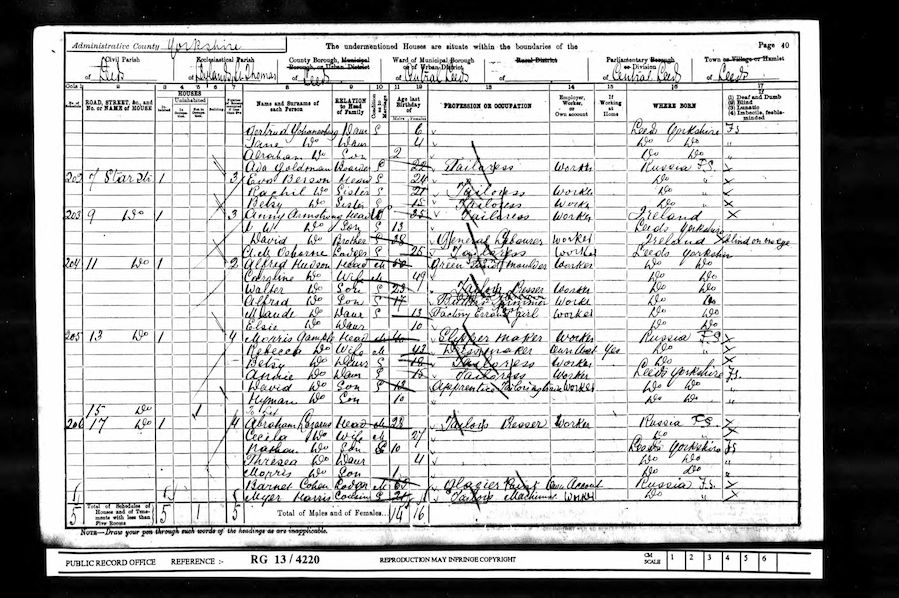 Administrative County Yorkshire
The undermentioned Houses are situate within the boundaries of the
Page 40
Civil Parish
of Leeds
Ecclesiastical Parish
of St Thomas
County Borough, Municipal Borough, or Urban District
of Leeds
Ward of Municipal Borough or of Urban District
of Central Leeds
Rural District
of
Parliamentary Borough or Division
of Central Leeds
Town or Village or Hamlet
of Leeds
ROAD, STREET, &c., and No. or NAME of HOUSE
HOUSES
Uninhabited
Name and Surname of each Person
RELATION to Head of Family
Condition as to Marriage
Age last Birthday of
Males Females
PROFESSION OR OCCUPATION
Employer, Worker, or Own account
If Working at Home
WHERE BORN
(1) Deaf and Dumb
(2) Blind
(3) Lunatic
(4) Imbecile, feeble-minded
Gertrud Daur S 6 Leeds Yorkshire F S
Jane Do Daur 4 Do Do "
Abraham Do Son 2 Do Do "
Ada Goldman Boarder S 22 Tailoress Worker Russia F.S.
202 7 Star St 1 3 Eva Berson Head S 24 Do "
Rachil Do Sister S 21 Tailoress Worker Do "
Betsy Do Sister S 15 Tailoress Worker Do "
203 9 Do 1 3 Anny Armstrong Head 25 Tailoress Worker Ireland
W Do Son 13 Leeds Yorkshire
David Do Brother 28 General Labourer Worker Ireland Blind on one eye
Osborne Lodger 25 Tailoress Worker Leeds Yorkshire
204 11 Do 1 2 Alfred Hudson Head M Green Sand Moulder Worker Do Do
Caroline Do Wife M 49 Do Do
Walter Do Son S 23 Tailors Presser Worker Do Do
Alfred Do Son S 17 Worker Do Do
Maude Do Daur S 13 Factory Errand girl Worker Do Do
Elsie Do Daur 10 Do Do
205 13 Do 1 4 Morris Gample Head M Slipper maker Worker Russia F.S.
Rebecca Do Wife M 42 Dressmaker Own Acct Yes Do "
Betsy Do Daur S Tailoress Worker Do "
Annie Do Daur S Tailoress Worker Leeds Yorkshire F S
David Do Son S Apprentice Tailoring Worker Do Do "
Hyman Do Son 10 Do Do "
15 Do 1 To Let
206 17 Do 1 4 Abraham Lazarus Head M 28 Tailors Presser Worker Russia F.S.
Cecila Do Wife M 27 Do "
Nathan Do Son 10 Leeds Yorkshire F S
Thresea Do Daur 4 Do Do "
Morris Do Son 1 Do Do "
Barnet Cohen Lodger M Glazier Own Account Russia F.S.
Myer Harris Cousin S Tailors Machinist Worker Do "
5 Total of Schedules of Houses and of Tenements with less than Five Rooms 5 1 5 Total of Males and of Females... 14 16
NOTE—Draw your pen through such words of the headings as are inapplicable.
PUBLIC RECORD OFFICE REFERENCE :- RG 13/4220 REPRODUCTION MAY INFRINGE COPYRIGHT CM SCALE 1 2 3 4 5 6